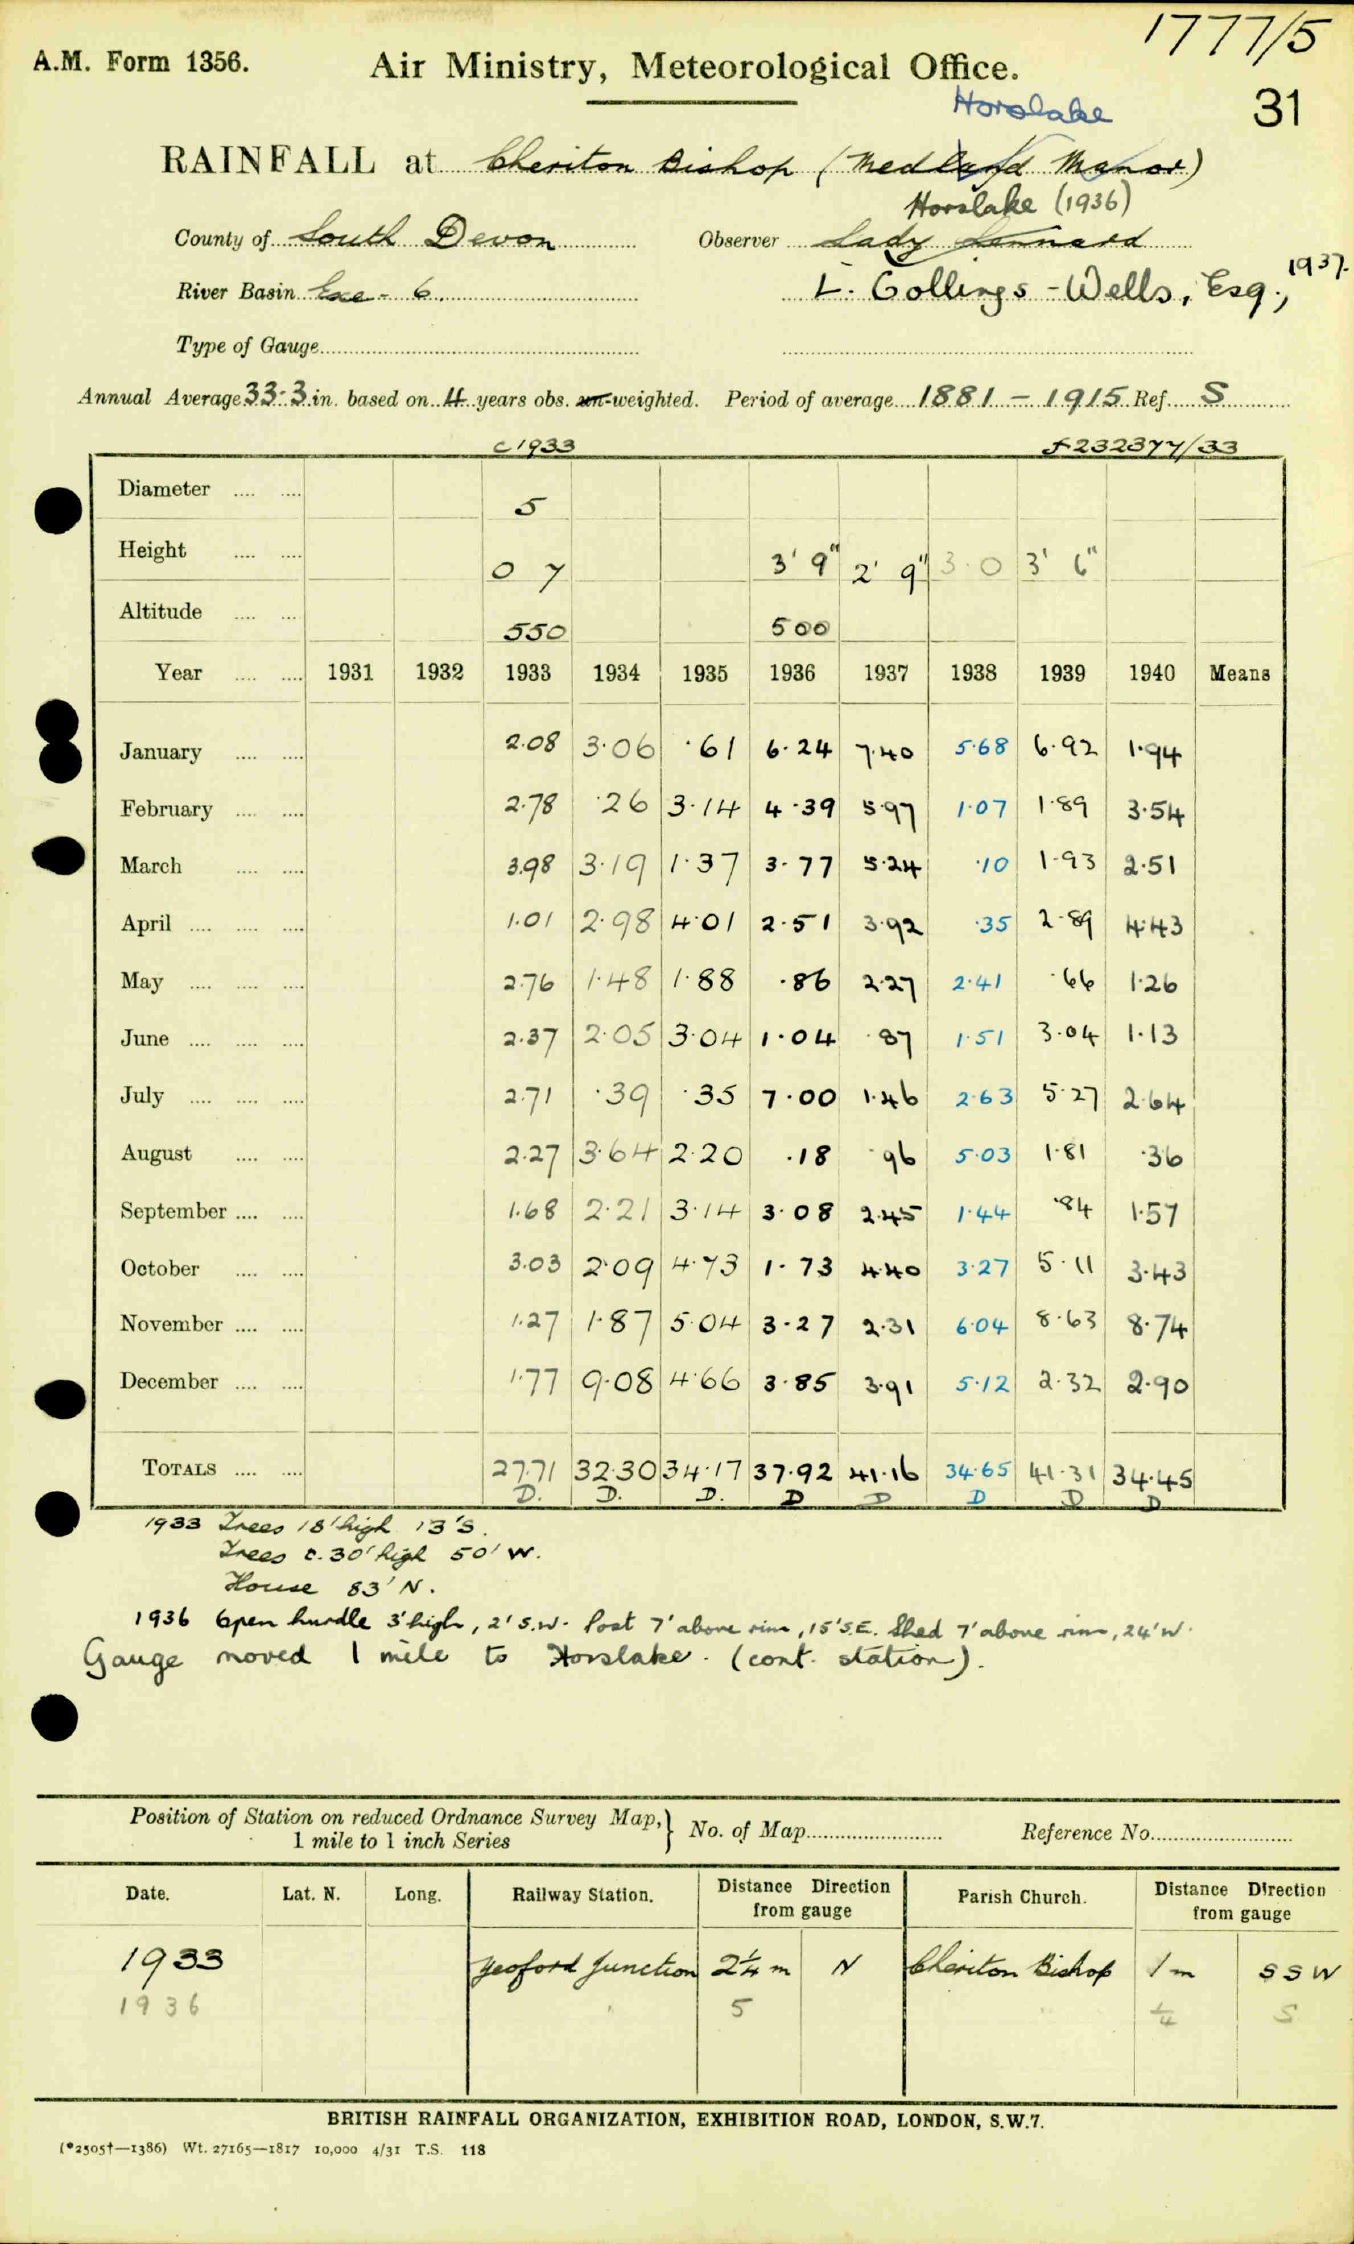 1777/5
A.M. Form 1356.
Air Ministry, Meteorological Office.
31
Horslake
RAINFALL at Cheriton Bishop (Medland Manor)
Horslake (1936)
County of South Devon Observer Lady Lennard
River Basin Exe - 6. L. Collings-Wells, Esq., 1937.
Type of Gauge
Annual Average 33.3 in. based on 4 years obs. un-weighted. Period of average 1881 - 1915 Ref. S
c1933 f232377/33
Diameter .... .... 5
Height .... .... 0 7 3' 9" 2' 9" 3.0 3' 6"
Altitude .... .... 550 500
Year .... .... 1931 1932 1933 1934 1935 1936 1937 1938 1939 1940 Means
January .... .... 2.08 3.06 .61 6.24 7.40 5.68 6.92 1.94
February .... .... 2.78 .26 3.14 4.39 5.97 1.07 1.89 3.54
March .... .... 3.98 3.19 1.37 3.77 5.24 .10 1.93 2.51
April .... .... .... 1.01 2.98 4.01 2.51 3.92 .35 2.89 4.43
May .... .... .... 2.76 1.48 1.88 .86 2.27 2.41 .66 1.26
June .... .... .... 2.37 2.05 3.04 1.04 .87 1.51 3.04 1.13
July .... .... .... 2.71 .39 .35 7.00 1.46 2.63 5.27 2.64
August .... .... 2.27 3.64 2.20 .18 .96 5.03 1.81 .36
September .... .... 1.68 2.21 3.14 3.08 2.45 1.44 .84 1.57
October .... .... 3.03 2.09 4.73 1.73 4.40 3.27 5.11 3.43
November .... .... 1.27 1.87 5.04 3.27 2.31 6.04 8.63 8.74
December .... .... 1.77 9.08 4.66 3.85 3.91 5.12 2.32 2.90
TOTALS .... .... 27.71 32.30 34.17 37.92 41.16 34.65 41.31 34.45
D. D. D. D D D D D
1933 Trees 18' high 13' S.
Trees c. 30' high 50' W.
House 83' N.
1936 Open hurdle 3' high, 2' S.W. Post 7' above rim, 15' S.E. Shed 7' above rim, 24' W.
Gauge moved 1 mile to Horslake. (cont. station).
Position of Station on reduced Ordnance Survey Map, } No. of Map Reference No.
1 mile to 1 inch Series
Date. Lat. N. Long. Railway Station. Distance Direction from gauge Parish Church. Distance Direction from gauge
1933 Yeoford Junction 2¼ m N Cheriton Bishop 1 m SSW
1936 " 5 " ¼ S
BRITISH RAINFALL ORGANIZATION, EXHIBITION ROAD, LONDON, S.W.7.
(*2505†—1386) Wt. 27165—1817 10,000 4/31 T.S. 118